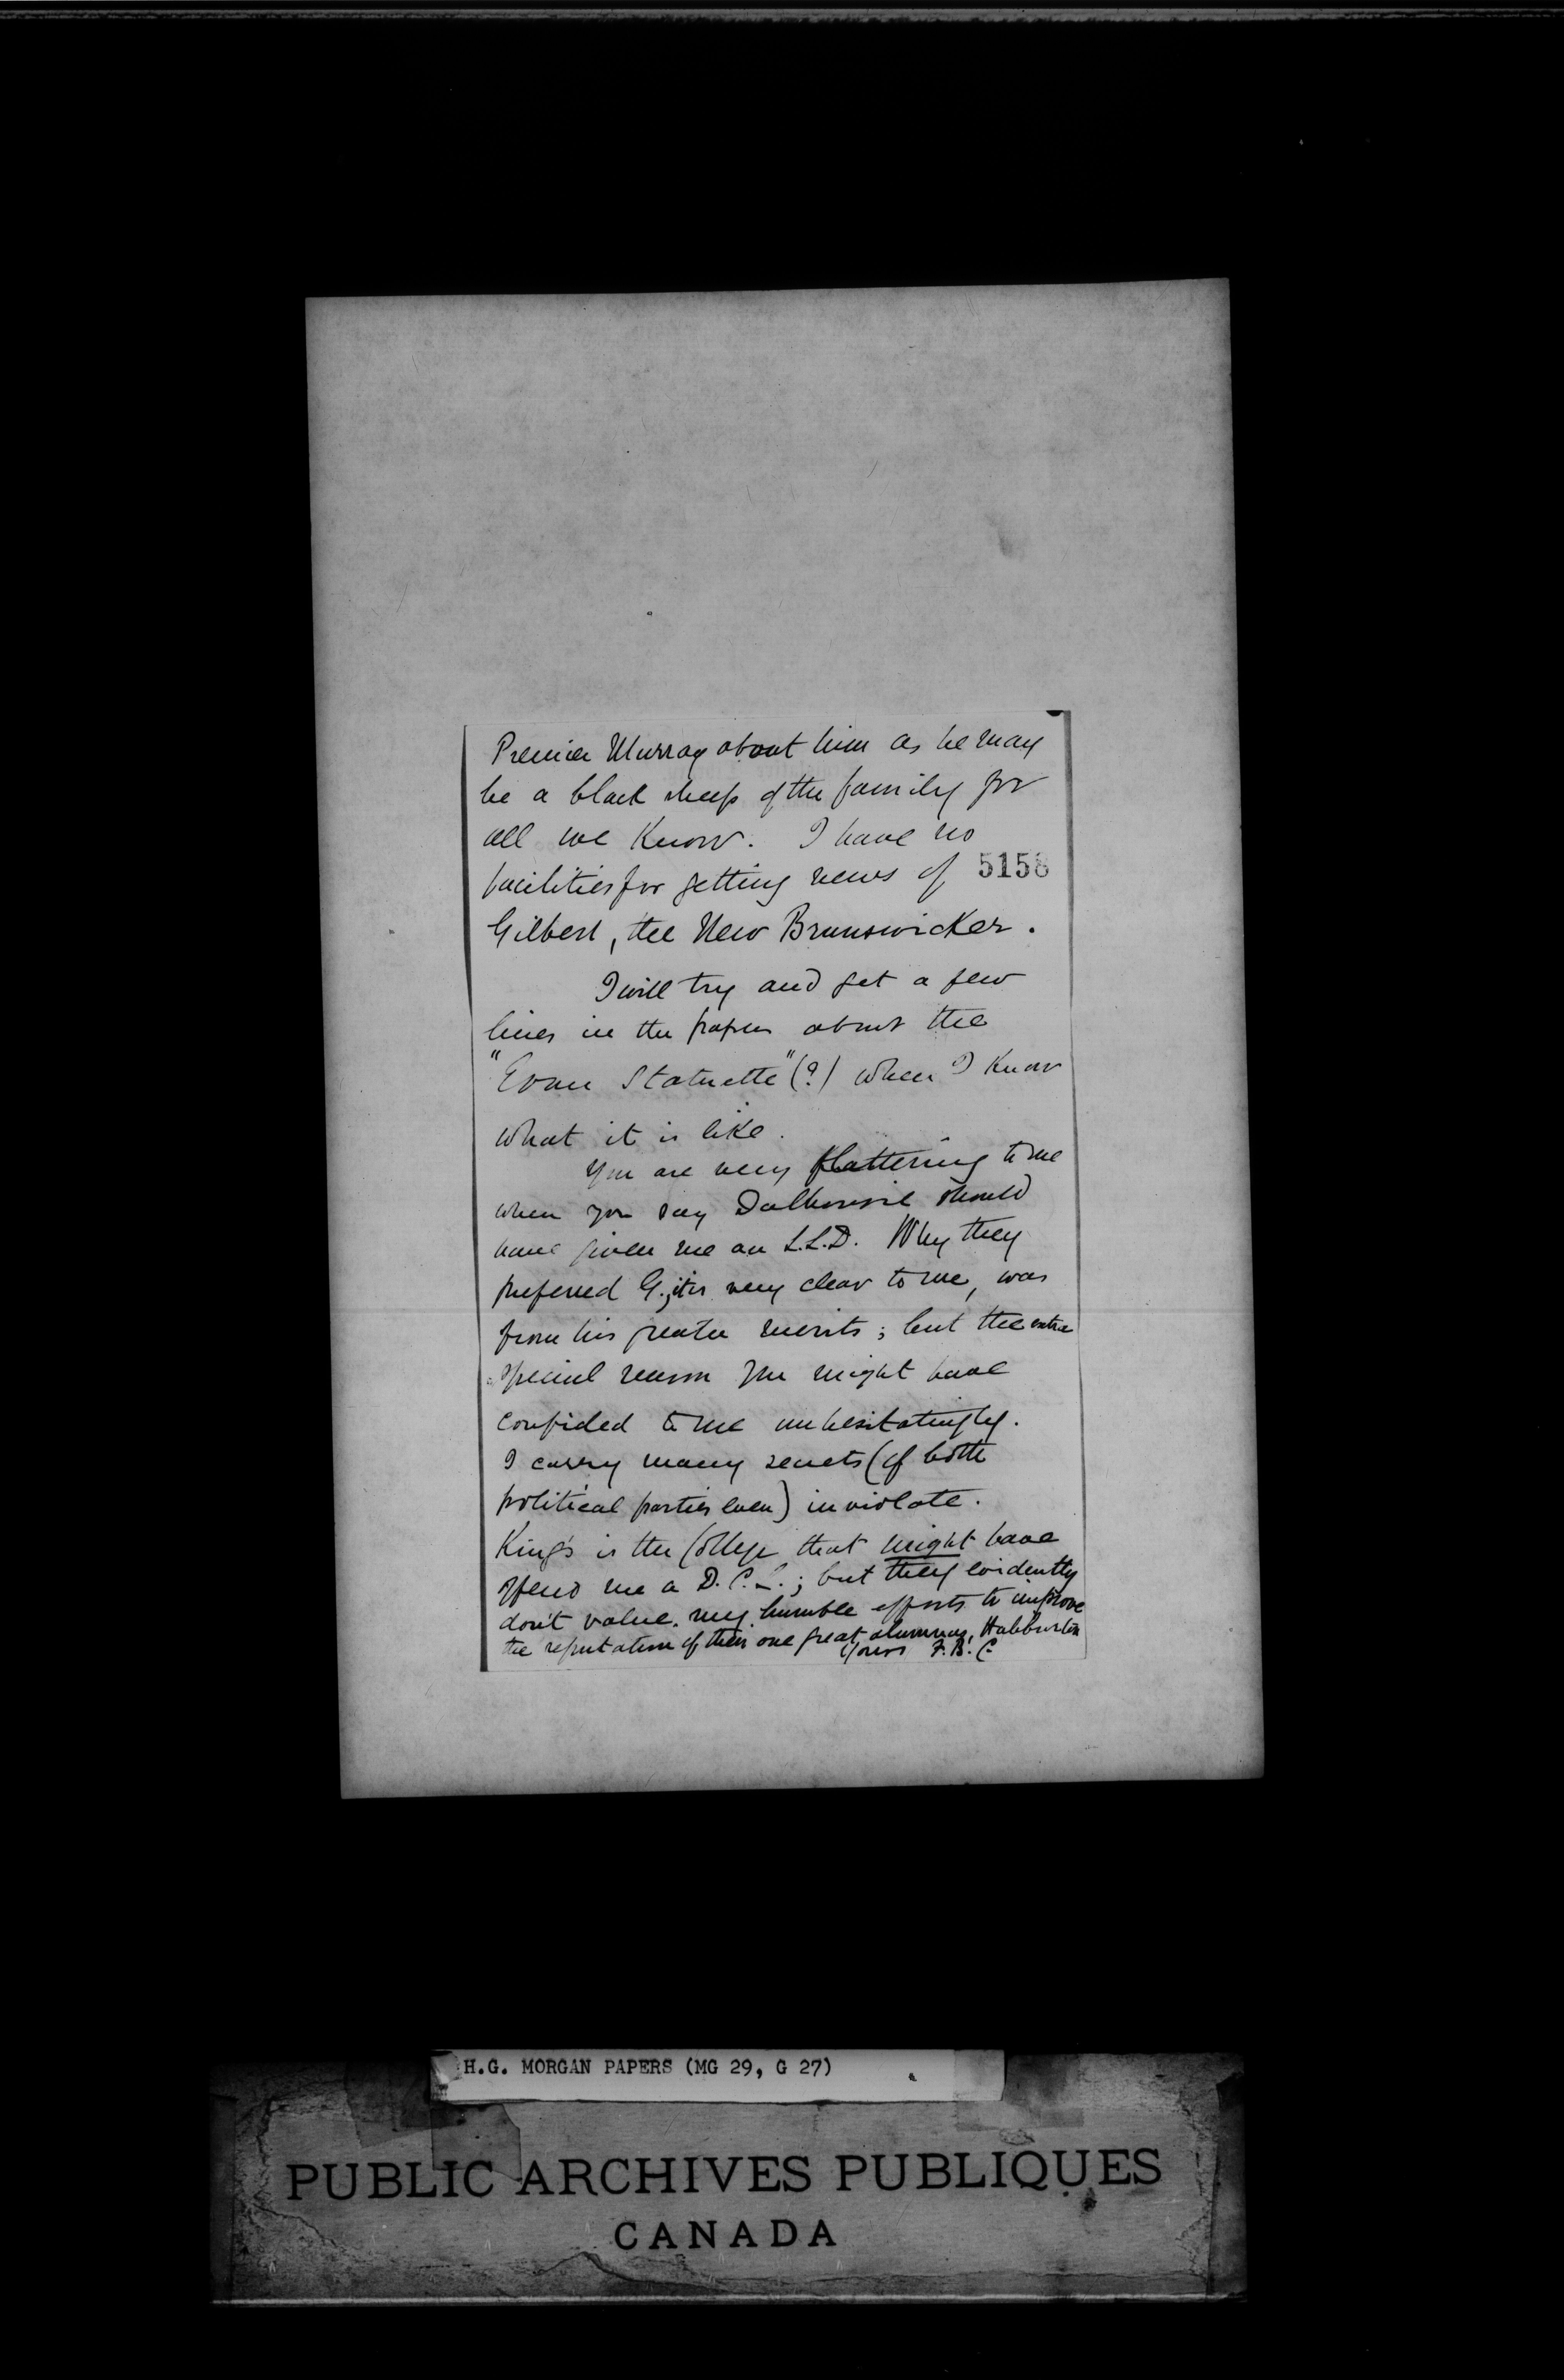 Premier Murray about him as he may
be a black sheep of the family for
all we know. I have no
facilities for getting news of 5158
Gilbert, the New Brunswicker.
I will try and get a few
lines in the papers about the
"Evan Statuette"(?) when I know
what it is like.
You are very flattering to me
when you say Dalhousie should
have given me an L.L.D. Why they
preferred G., it is very clear to me, was
from his greater merits; but the extra
special reason you might have
confided to me unhesitatingly.
I carry many secrets (of both
political parties even) inviolate.
King's is the College that might have
offered me a D.C.L.; but they evidently
don't value my humble efforts to improve
the reputation of their one great alumnus, Haliburton
Yours F.B.C.
H.G. MORGAN PAPERS (MG 29, G 27)
PUBLIC ARCHIVES PUBLIQUES
CANADA